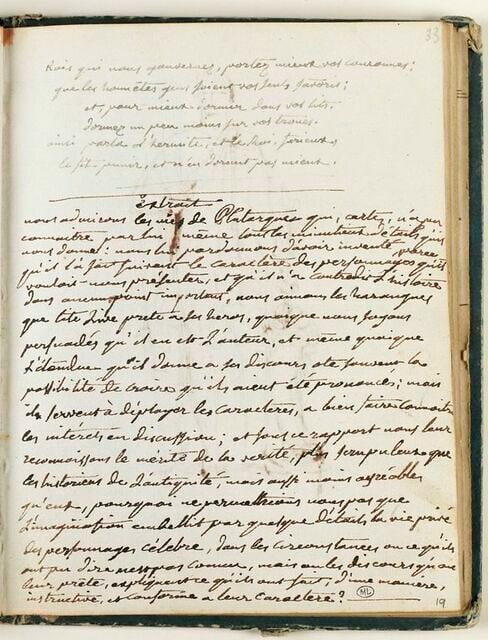 33
Rois qui nous gouvernez, portez mieux vos couronnes;
que les honnêtes gens soient vos seuls favoris;
et, pour mieux dormir dans vos lits,
dormez un peu moins sur vos trones.
ainsi parla l'hermite, et le Roi, furieux
le fit punir, et n'en dormit pas mieux.
extrait
nous admirons les vies de Plutarque qui, certes, n'a pu
connaitre par lui même tous les minutieux détails qu'il
nous donne: nous lui pardonnons d'avoir inventé, parce
qu'il l'a fait suivant le caractère des personnages qu'il
voulait nous présenter, et qu'il n'a contredit l'histoire
dans aucun point important, nous aimons les harangues
que tite Live prete a ses heros, quoique nous soyons
persuadés qu'il en est l'auteur, et même quoique
l'étendue qu'il donne a ses discours ote souvent la
possibilité de croire qu'ils aient été prononcés; mais
ils servent à déployer les caractères, a bien faire connaitre
les intérets en discussion; et sous ce rapport nous leur
reconnaissons le mérite de la verité, plus scrupuleux que
les historiens de l'antiquité, mais aussi moins agréables
qu'eux, pourquoi ne permettrions nous pas que
l'imagination embellit par quelque détails la vie privée
des personnages célebre, dans les circonstances ou ce qu'ils
ont pu dire n'est pas connu, mais ou les discours qu'on
leur prête, expliquent ce qu'ils ont fait, d'une manière,
instructive, et conforme a leur caractère?
ML
19